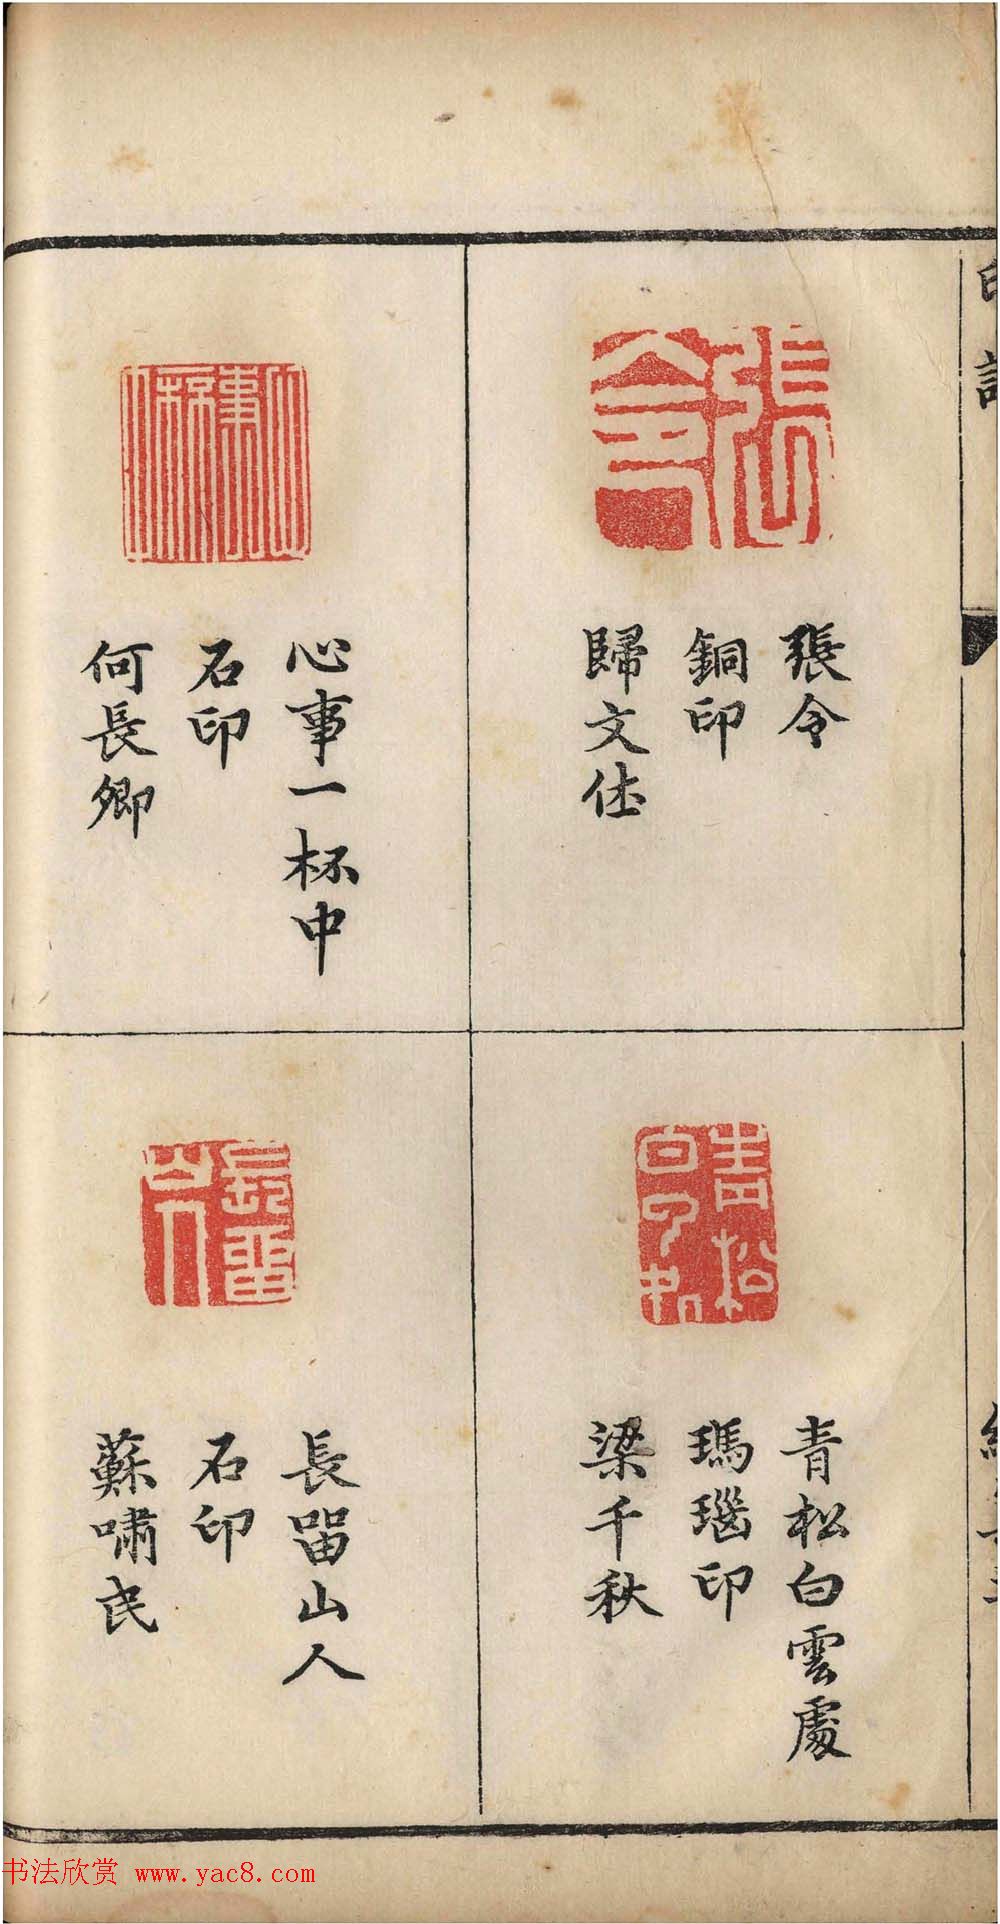 張令
銅印
歸文休
青松白雲處
瑪瑙印
梁千秋
心事一杯中
石印
何長卿
長留山人
石印
蘇嘯民
书法欣赏 www.yac8.com